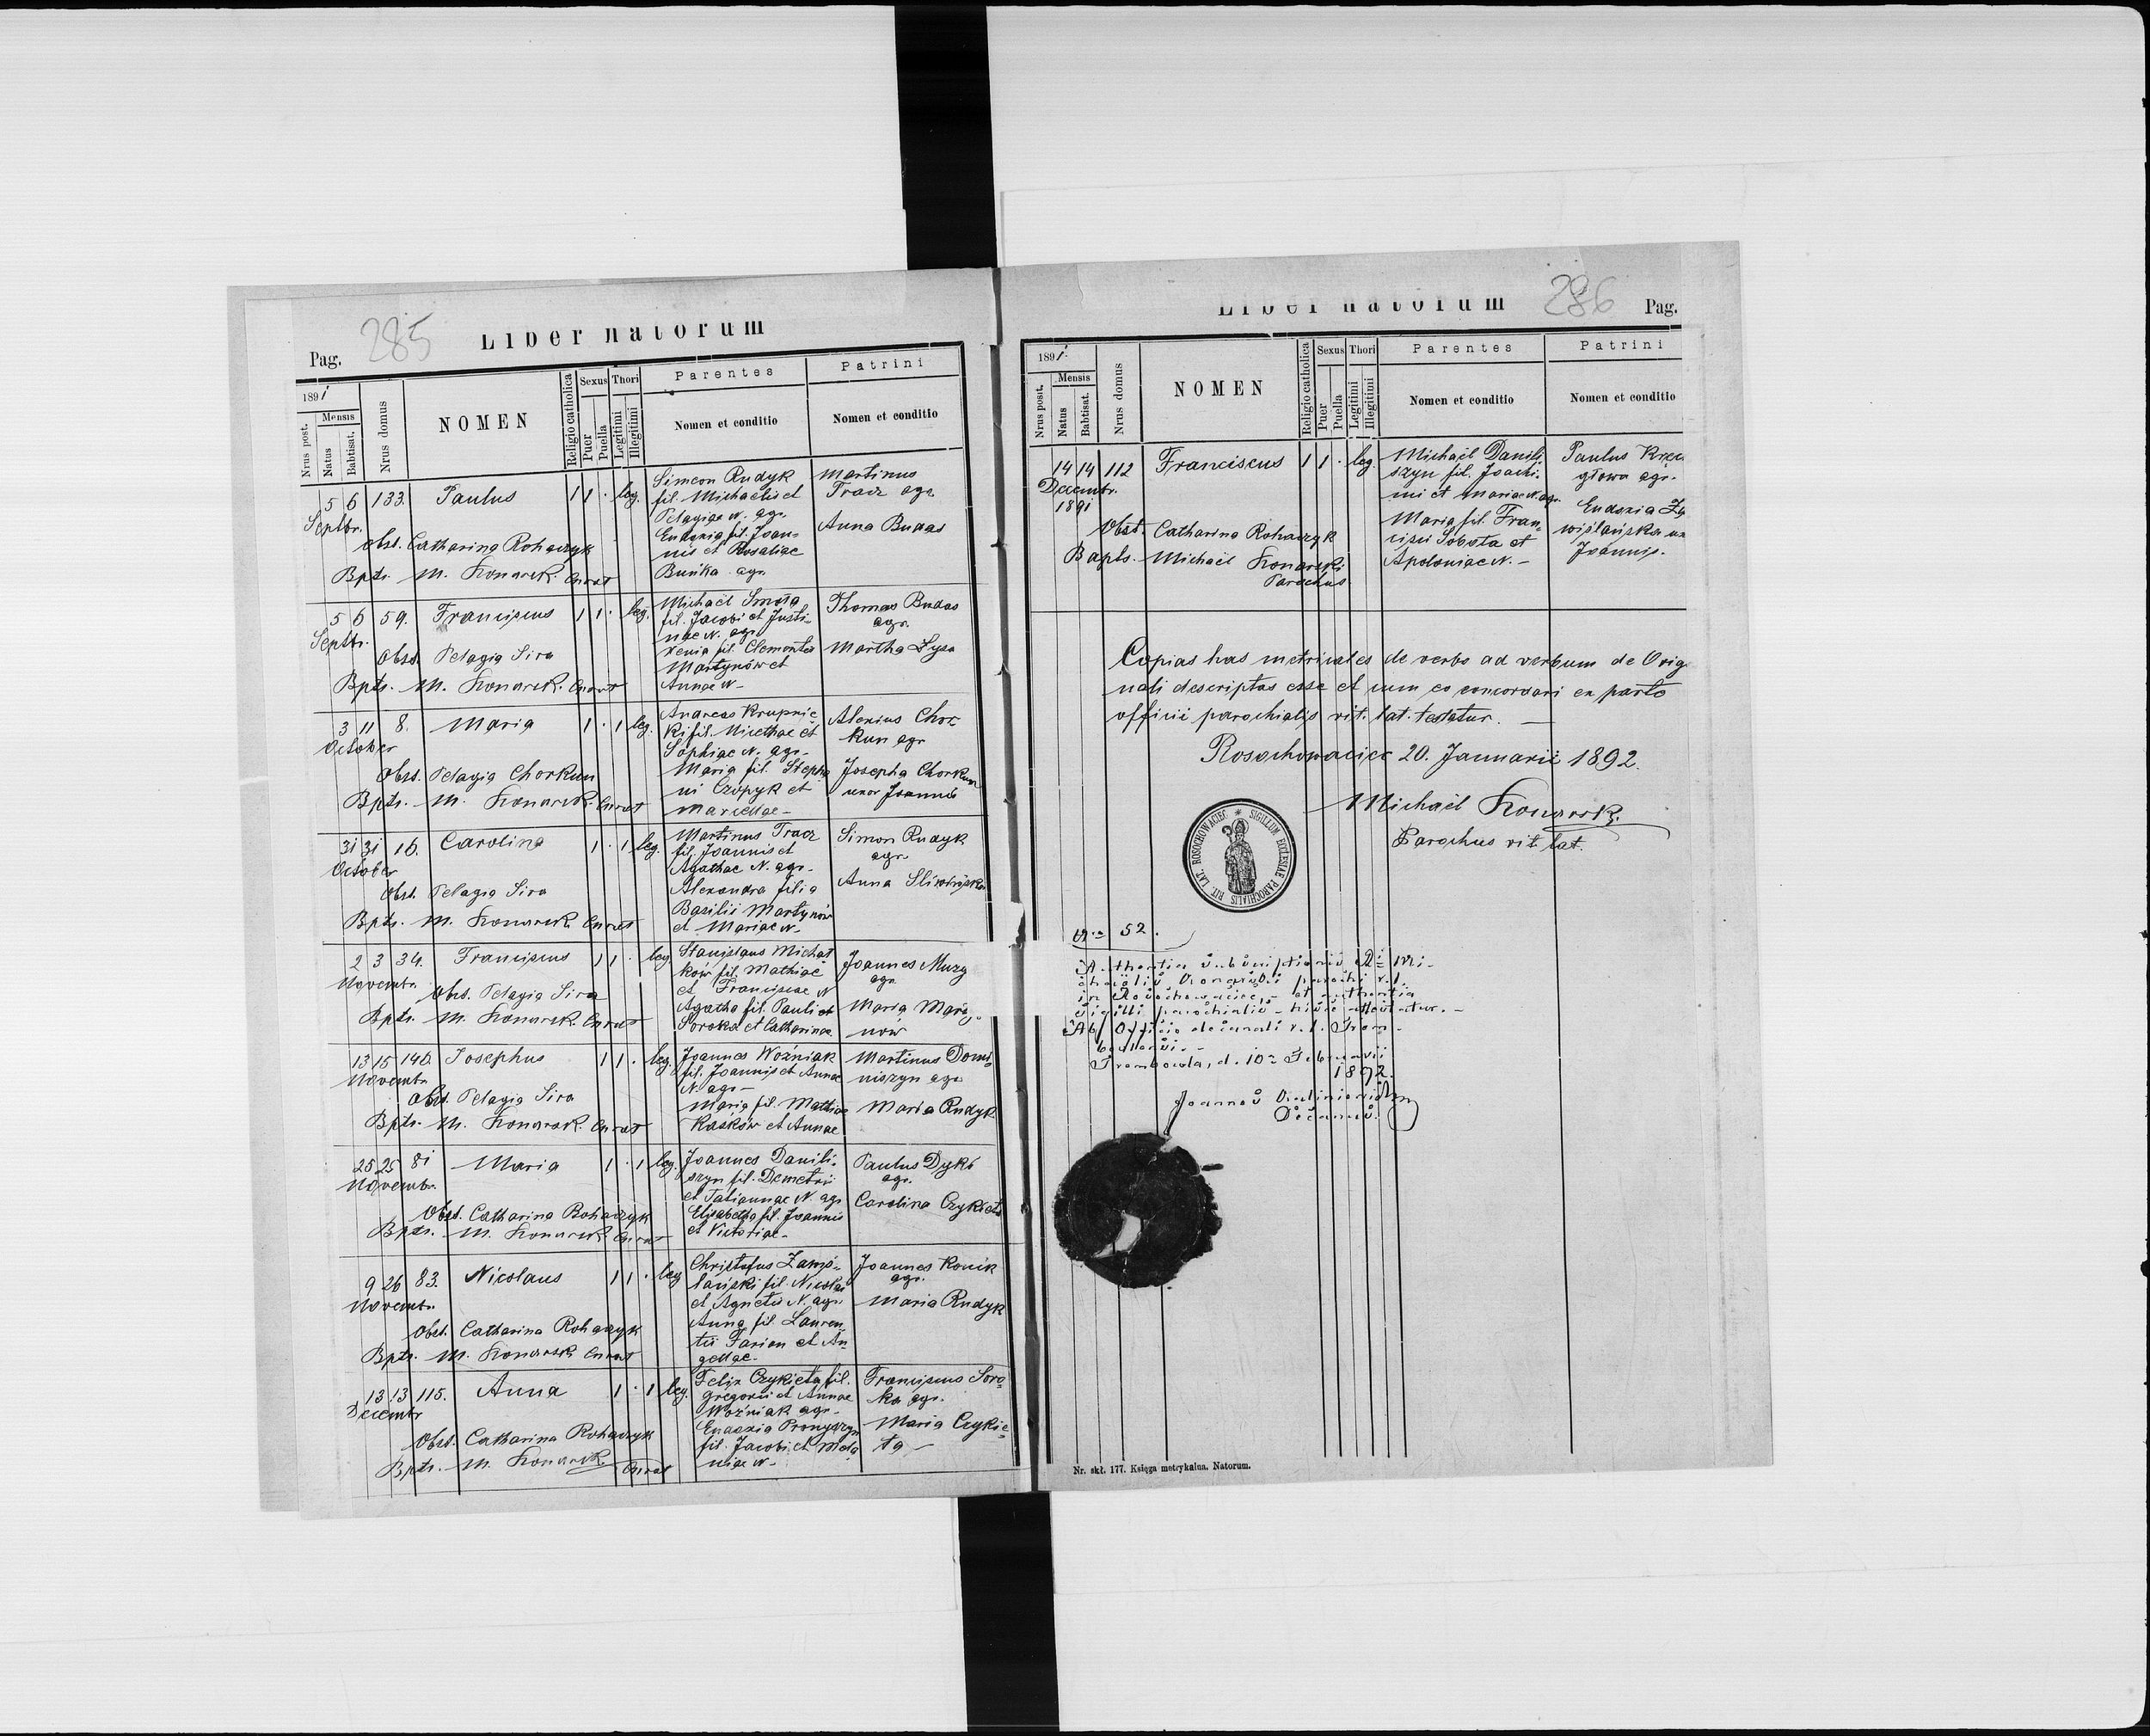 285
Liber natorum
Pag.
1891
Mensis
Nrus post.
Natus
Babtisat.
Nrus domus
NOMEN
Religio catholica
Sexus
Puer
Puella
Thori
Legitimi
Illegitimi
Parentes
Nomen et conditio
Patrini
Nomen et conditio
5 6 133. Paulus 1 1 · leg.
Septbr.
Obst. Catharina Rohaczyk
Bpts. M. Konarsk. Curat
Simeon Rudyk
fil. Michaelis et
Pelagiae N. agr.
Eudoxia fil. Joan-
nis et Rosaliae
Buńka agr.
Martinus
Tracz agr.
Anna Budas
5 6 59. Franciscus 1 1 · leg.
Septbr.
Obst. Pelagia Sira
Bpts. M. Konarsk. Curat
Michaël Smoła
fil. Jacobi et Justi-
nae N. agr.
Xenia fil. Clementis
Martynów et
Annae N-
Thomas Budas
agr.
Martha Łysa
3 11 8. Maria 1 · 1 leg.
October
Obst. Pelagia Chorkun
Bpts. M. Konarsk. Curat
Andreas Krupnic-
ki fil. Nicethae et
Sophiae N. agr.
Maria fil. Stepha
ni Czopyk et
Mariettae-
Alexius Chor-
kun agr
Josepha Chorkun
uxor Joannis
31 31 16. Carolina 1 · 1 leg.
October
Obst. Pelagia Sira
Bpts. M. Konarsk Curat
Martinus Tracz
fil. Joannis et
Agathae N. agr.
Alexandra filia
Basilii Martynów
et Mariae N-
Simon Rudyk
agr.
Anna
2 3 34. Franciscus 1 1 · leg.
Novembr.
Obst. Pelagia Sira
Bpts. M. Konarsk. Curat
Stanislaus Michał
ków fil. Mathiae
et Franciscae N
Agatha fil. Pauli et
Soroka et Catharinae
Joannes Murg
agr.
Maria Mary-
now
13 15 146. Josephus 1 1 · leg.
Novembr.
Obst. Pelagia Sira
Bpts. M. Konarsk. Curat
Joannes Woźniak
fil. Joannis et Annae
N. agr-
Maria fil. Mathiae
Kasków et Annae
Martinus Domi-
niszyn agr
Maria Rudyk
25 25 81 Maria 1 · 1 leg.
Novembr.
Obst. Catharina Rohaczyk
Bpts. M. Konarsk. Curat
Joannes Danili-
szyn fil. Demetri
et Tatiannae N. agr
Elisabetha fil. Joannis
et Victoriae-
Paulus Dyki
agr.
Carolina Czykieta
9 26 83. Nicolaus 1 1 · leg
Novembr.
Obst. Catharina Rohaczyk
Bpts. M. Konarsk Curat
Christofus
fil. Nicolai
et Agnetis N. agr.
Anna fil. Lauren-
tii Farion et An-
gellae-
Joannes Konik
agr.
Maria Rudyk
13 13 115. Anna 1 · 1 leg.
Decembr
Obst. Catharina Rohaczyk
Bpts. M. Konarsk. Curat
Felix Czykieta fil.
Gregorii et Annae
Woźniak agr-
Eudoxia
fil. Jacobi et Mela
niae N-
Franciscus Soro-
ka agr.
Maria Czykie-
ta -
Liber natorum
286
Pag.
1891
Mensis
Nrus post.
Natus
Babtisat.
Nrus domus
NOMEN
Religio catholica
Sexus
Puer
Puella
Thori
Legitimi
Illegitimi
Parentes
Nomen et conditio
Patrini
Nomen et conditio
14 14 112 Franciscus 1 1 · leg.
Decembr.
1891
Obst. Catharina Rohaczyk
Bapts. Michaël Konarski
Parochus
Michaël Danili
szyn fil. Joachi-
mi et Mariae N. agr.
Maria fil. Fran-
cisci Sobota et
Apoloniae N. -
Paulus
głowa agr.
Eudoxia
Joannis.
Copias has metricales de verbo ad verbum de Origi
nali descriptas esse et cum eo concordari ex parte
officii parochialis rit. lat. testatur. —
Rosochowaciec 20. Januarii 1892.
Michaël Konarski
Parochus rit lat.
SIGILLUM ECCLESIAE PAROCHIALIS RIT. LAT. ROSOCHOWACIEC
Nro 52.
Authentia subscriptionis Mi-
chaëlis Konarski parochi r. l.
in Rosochowaciec et authentia
sigilli parochialis hisce attestatur. -
Ab Officio decanali r. l. Trem-
Trembowla, d. 10 Februarii
1892.
Joannes
Decanus.
Nr. skł. 177. Księga metrykalna. Natorum.